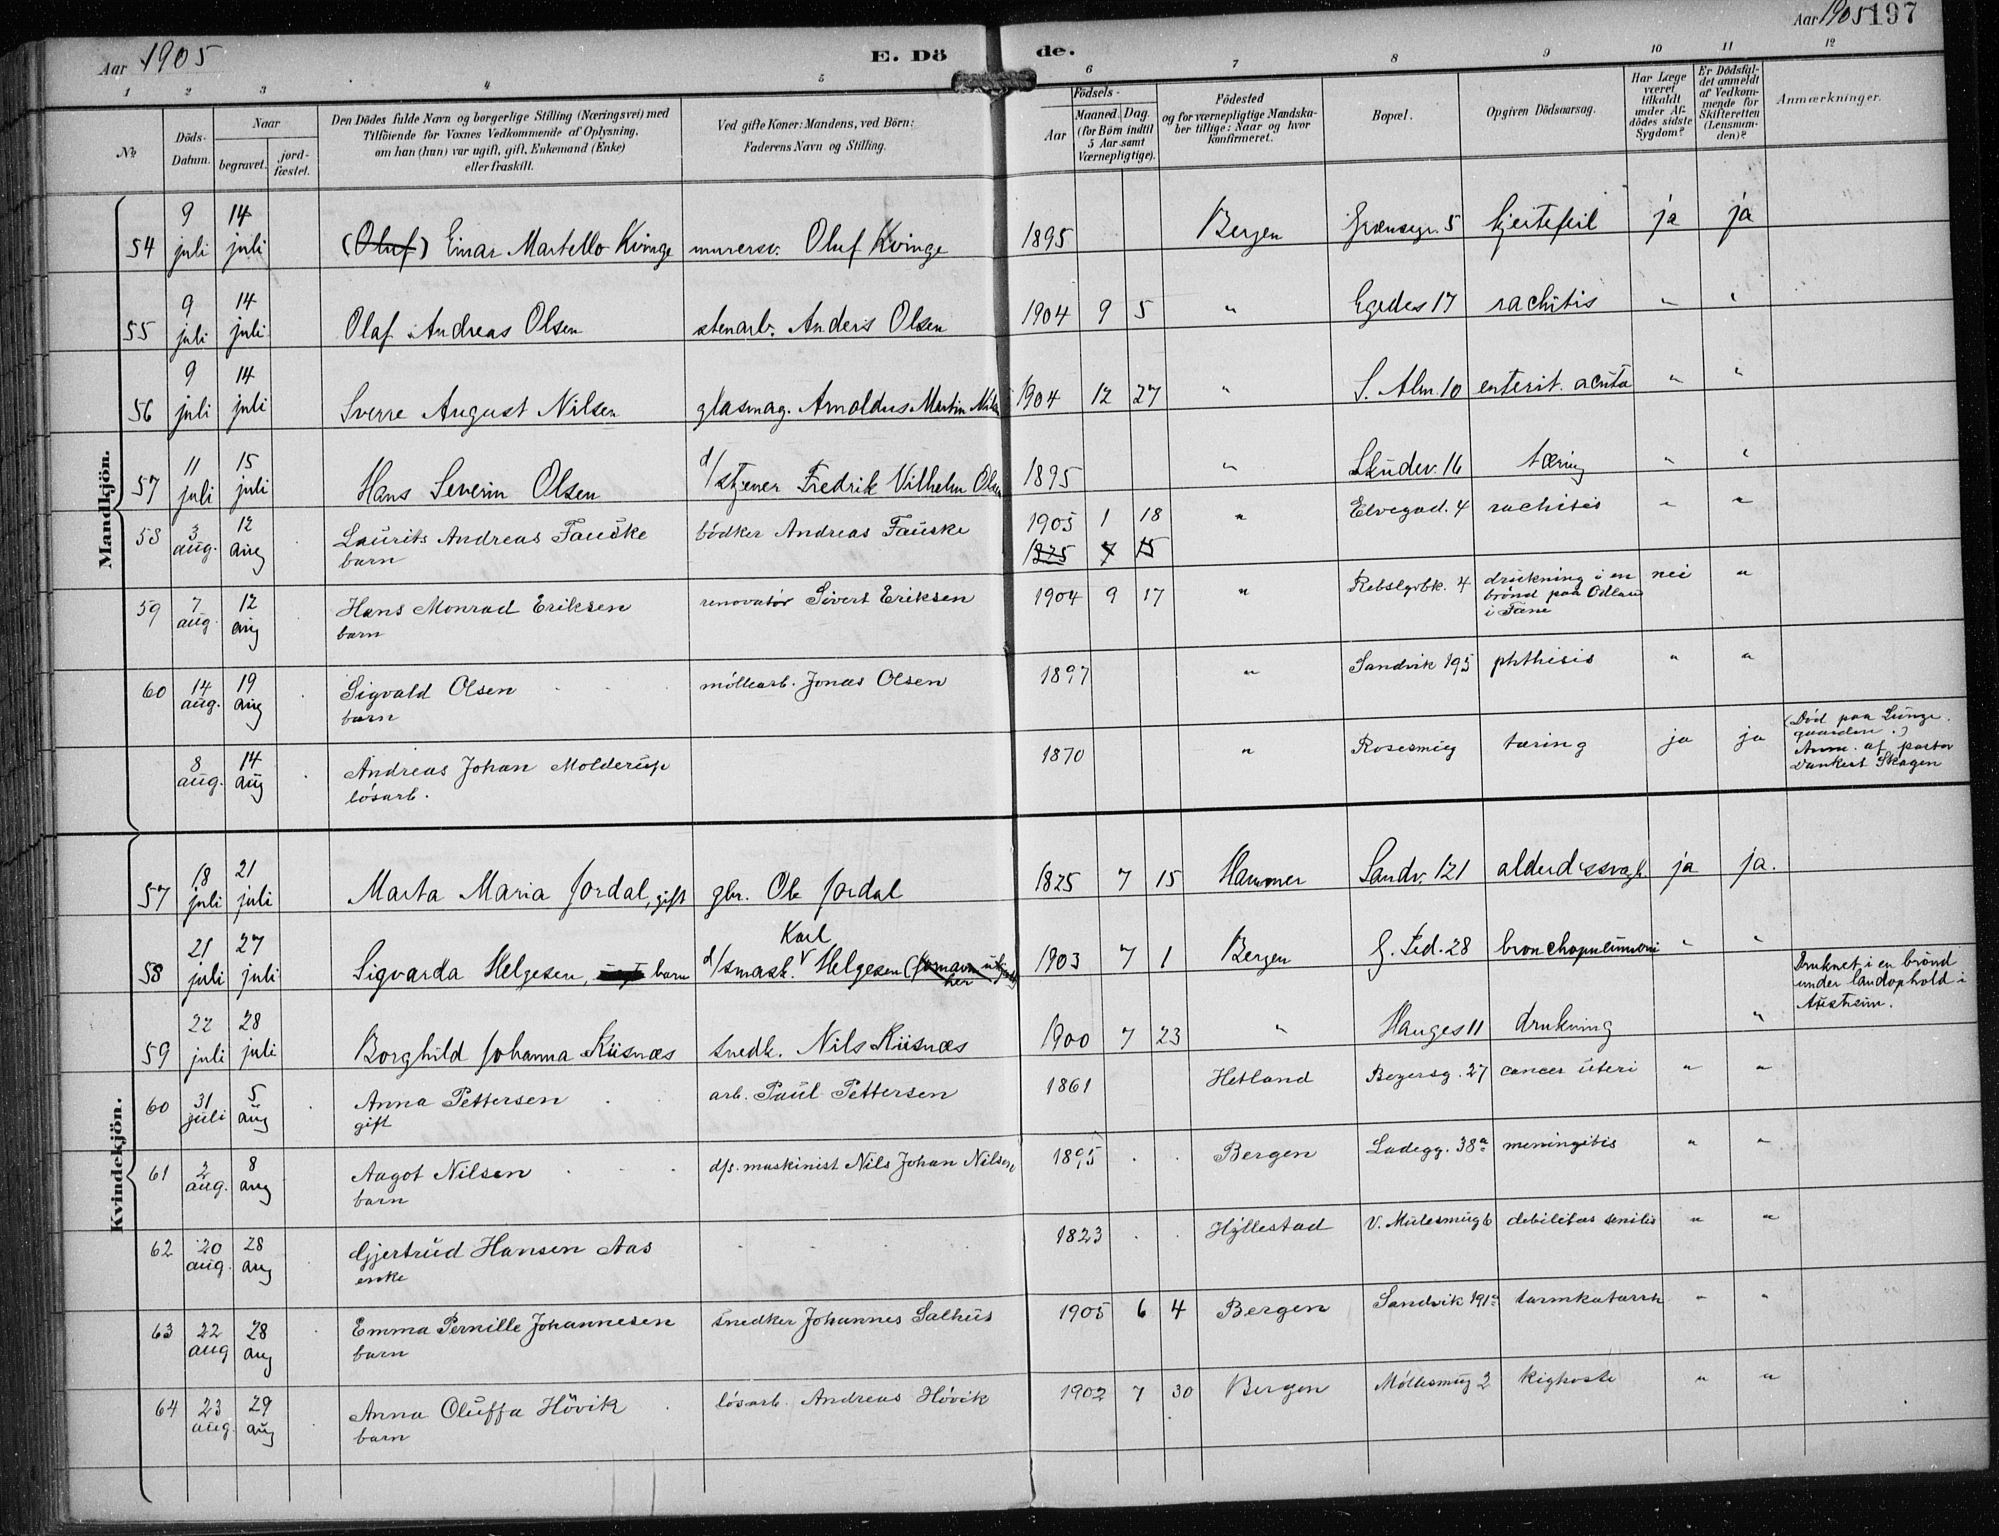 Aar 1905 E. Dö de. Aar 1905 197
1 2 3 4 5 6 7 8 9 10 11 12
No. Döds-Datum. Naar begravet. jord-fæstet. Den Dödes fulde Navn og borgerlige Stilling (Næringsvei) med Tilföiende for Voxnes Vedkommende af Oplysning, om han (hun) var ugift, gift, Enkemand (Enke) eller fraskilt. Ved gifte Koner: Mandens, ved Börn: Faderens Navn og Stilling. Födsels- Aar Maaned. Dag. (for Börn indtil 5 Aar samt Værnepligtige). Födested og for værnepligtige Mandskaber tillige: Naar og hvor Konfirmeret. Bopæl. Opgiven Dödsaarsag. Har Læge været tilkaldt under Afdödes sidste Sygdom? Er Dödsfaldet anmeldt af Vedkommende for Skifteretten (Lensmanden)? Anmærkninger.
Mandkjön.
54 9 juli 14 juli (Oluf) Einar Martello Kvinge murersv. Oluf Kvinge 1895 Bergen Grænsegr. 5 hjertefeil ja ja
55 9 juli 14 juli Olaf Andreas Olsen stenarb. Anders Olsen 1904 9 5 " Egedes 17 rachitis " "
56 9 juli 14 juli Sverre August Nilsen glasmag. Arnoldus Martin Nilsen 1904 12 27 " S. Alm. 10 enterit. acuta " "
57 11 juli 15 juli Hans Severin Olsen d/stjener Fredrik Vilhelm Olsen 1895 " Skudev. 16 tæring " "
58 3 aug. 12 aug Laurits Andreas Fauske bödker Andreas Fauske 1905 1 18 " Elvegad. 4 rachitis " "
barn 1825 7 15
59 7 aug. 12 aug Hans Monrad Eriksen renovatör Sivert Eriksen 1904 9 17 " Rebslgrbk. 4 drukning i en brönd paa Odland i Fane nei "
barn
60 14 aug. 19 aug Sigvald Olsen möllearb. Jonas Olsen 1897 " Sandvik 195 phthisis " "
barn
8 aug. 14 aug Andreas Johan Molderup 1870 " Rosesmug tæring ja ja (Död paa Lungegaarden.) Anm. af pastor Dankert Skagen
lösarb.
Kvindekjön.
57 18 juli 21 juli Marta Maria Jordal, gift gbr. Ole Jordal 1825 7 15 Hammer Sandv. 121 alderdomssvagh. ja ja.
58 21 juli 27 juli Sigvarda Helgesen, barn d/smask. Karl Helgesen 1903 7 1 Bergen bronchopneumoni " "
59 22 juli 28 juli Borghild Johanna Riisnæs snedk. Nils Riisnæs 1900 7 23 " Hauges 11 drukning " Druknet i en brönd under landophold i Austreim.
60 31 juli 5 aug Anna Pettersen arb. Paul Pettersen 1861 Hetland Beyersg. 27 cancer uteri " "
gift
61 2 aug. 8 aug Aagot Nilsen d/s. maskinist Nils Johan Nilsen 1895 Bergen Ladegg. 38a meningitis " "
barn
62 20 aug. 28 aug Gjertrud Hansen Aas 1823 Hyllestad V. Mulesmug 6 debilitas senilis " "
enke
63 22 aug 28 aug Emma Pernille Johannesen snedker Johannes Salhus 1905 6 4 Bergen Sandvik 191a tarmkatarrh " "
barn
64 23 aug. 29 aug Anna Oluffa Hövik lösarb. Andreas Hövik 1902 7 30 Bergen Möllesmug 2 kighoste " "
barn